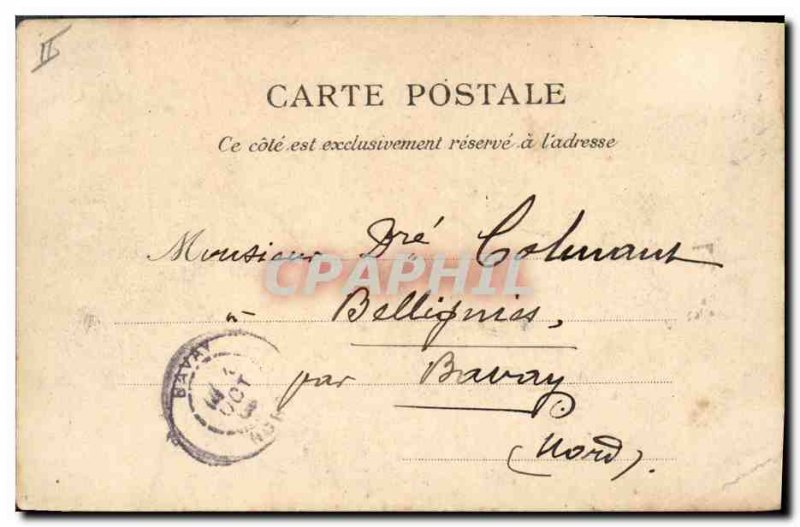 CARTE POSTALE
Ce côté est exclusivement réservé à l'adresse
Monsieur Dré Colmant
CPAPHIL
à Bellignies,
par Bavay
(Nord).
BAVAY
OCT
NORD